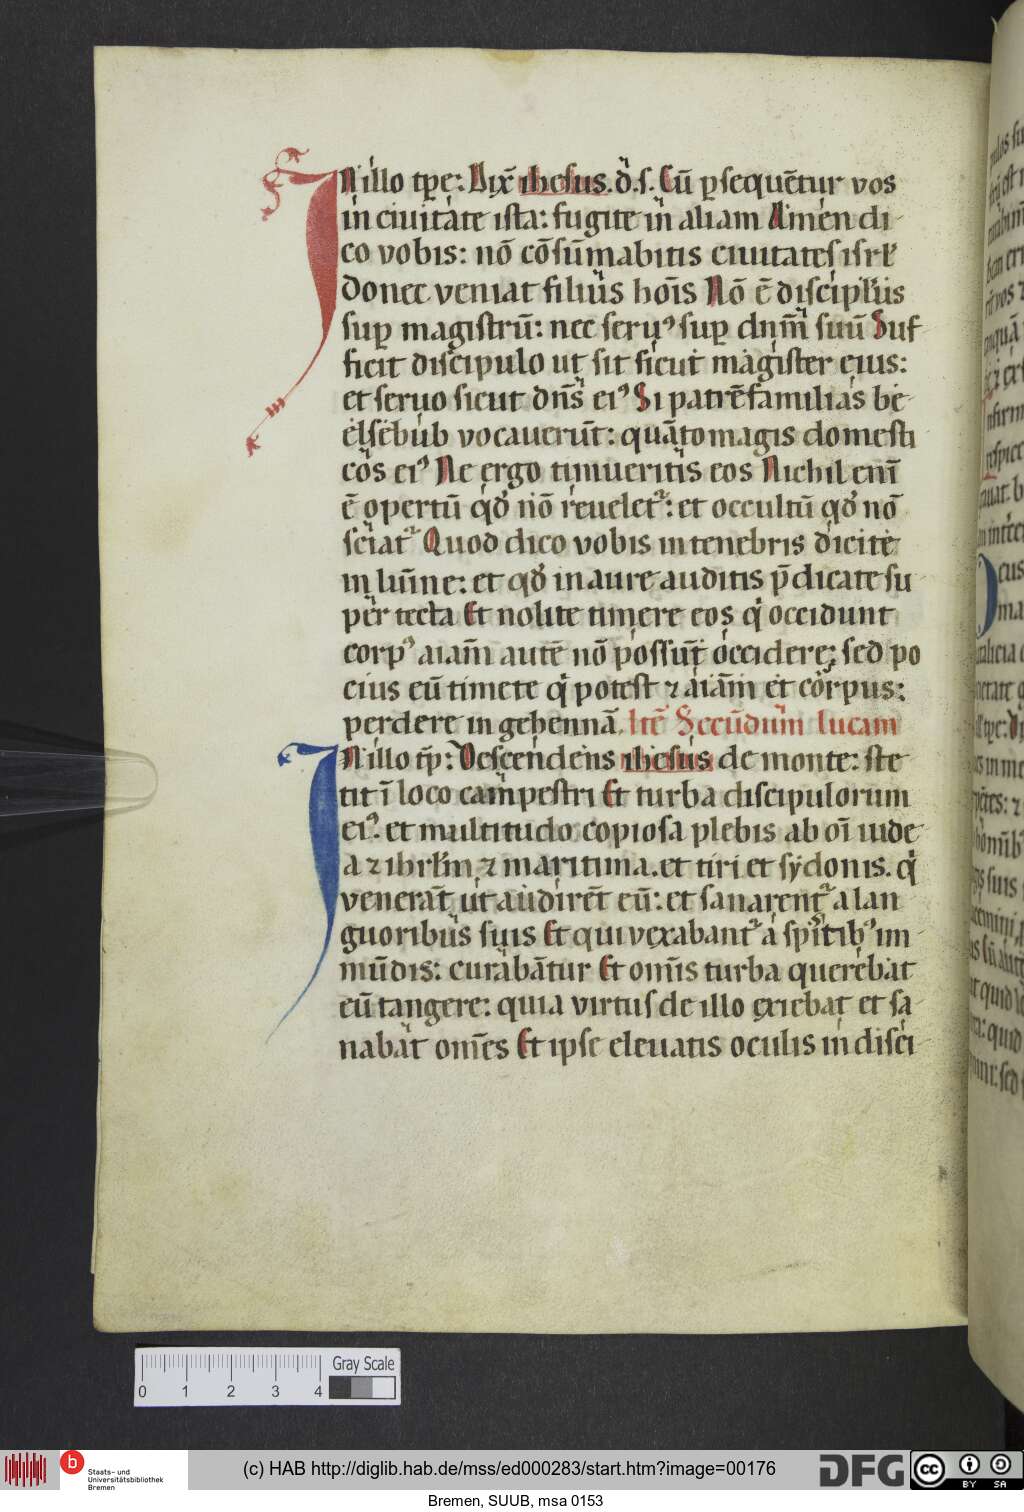 IN illo tp̄e: Dix̄ ihesus. d̓. s. Cū ꝑsequētur vos
in ciuitate ista: fugite in aliam Amen di
co vobis: nō cōsūmabitis ciuitates isrł
donec veniat filius hoīs Nō ē discipłus
suꝑ magistrū: nec seruꝰ suꝑ dnm̄ suū Suf
ficit discipulo ut sit sicut magister eius:
et seruo sicut dn̄s eiꝰ Si patrēfamilias be
elsebub vocauerūt: quāto magis domesti
cos eiꝰ Ne ergo timueritis eos Nichil enī
ē opertū qd̓ nō reuelet᷑: et occultū qd̓ nō
sciat᷑ Quod dico vobis in tenebris dicite
in lum̄ne: et qd̓ in aure auditis p̄dicate su
per tecta Et nolite timere eos qͥ occidunt
corpꝰ aiam̄ autē nō possūt occidere; sed po
cius eū timete qͥ potest ⁊ aiām et corpus:
perdere in gehennā. Itē Secūdum lucam
IN illo tp̄: Descendens ihesus de monte: ste
tit ī loco campestri Et turba discipulorum
eiꝰ. et multitudo copiosa plebis ab oī iude
a ⁊ ihrłm ⁊ maritima. et tiri et sydonis. qͥ
venerat̄ ut audirēt eū: et sanarent᷑ a lan
guoribus suis Et qui vexabant᷑ a spīritibꝰ im
mūdis: curabātur Et omīs turba querebat
eū tangere: quia virtus de illo exiebat et sa
nabat om̄es Et ipse eleuatis oculis in disci
0 1 2 3 4 Gray Scale
b Staats- und Universitätsbibliothek Bremen
(c) HAB http://diglib.hab.de/mss/ed000283/start.htm?image=00176
DFG cc BY SA
Bremen, SUUB, msa 0153